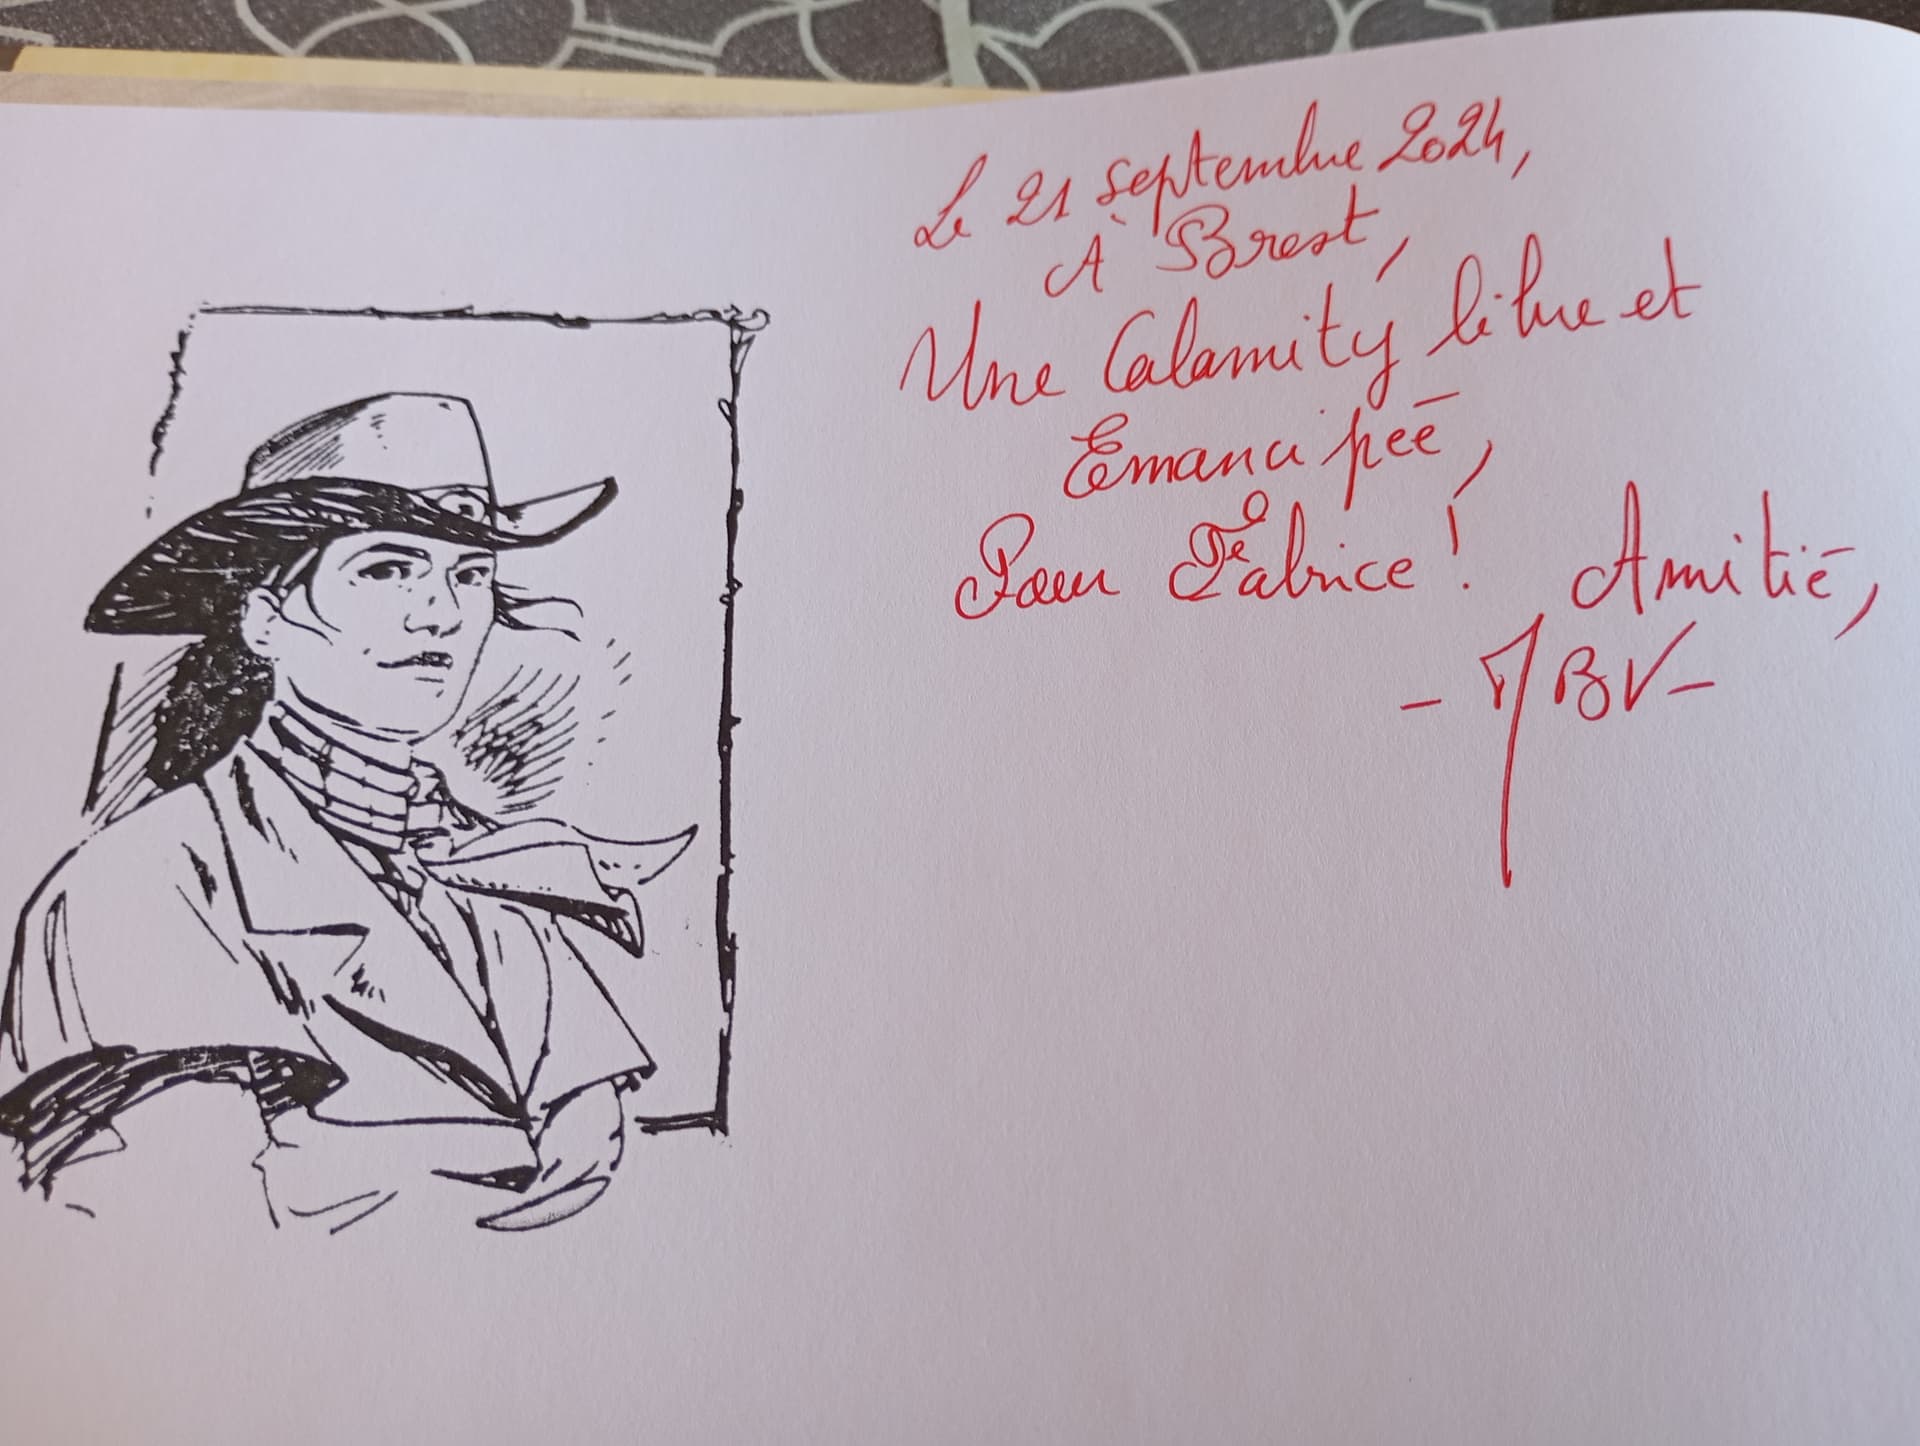 Le 21 septembre 2024,
À Brest,
Une Calamity libre et
Emancipée,
Pour Fabrice ! Amitié,
- JBV -